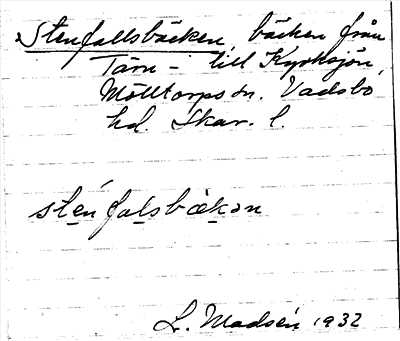 Stenfallsbäcken, bäcken från
Tärn- till Kyrksjön,
Mölltorps sn. Vadsbo
hd. Skar. l.
sténfalsbäkən
L. Madsén 1932